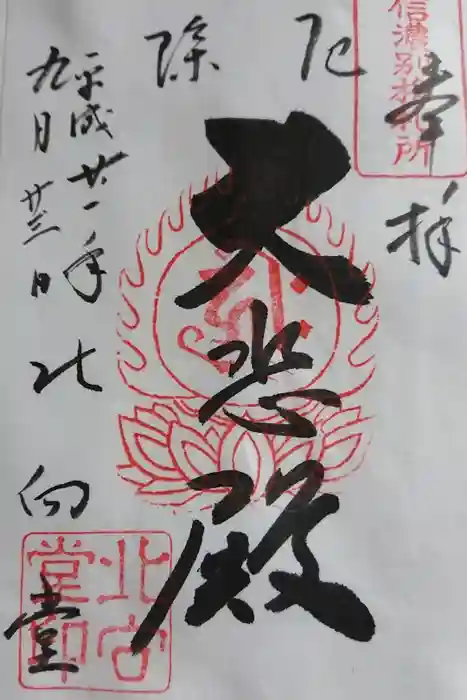 奉拝
信濃別格札所
厄除
大悲殿
平成廿一年
九月廿三日
北向堂